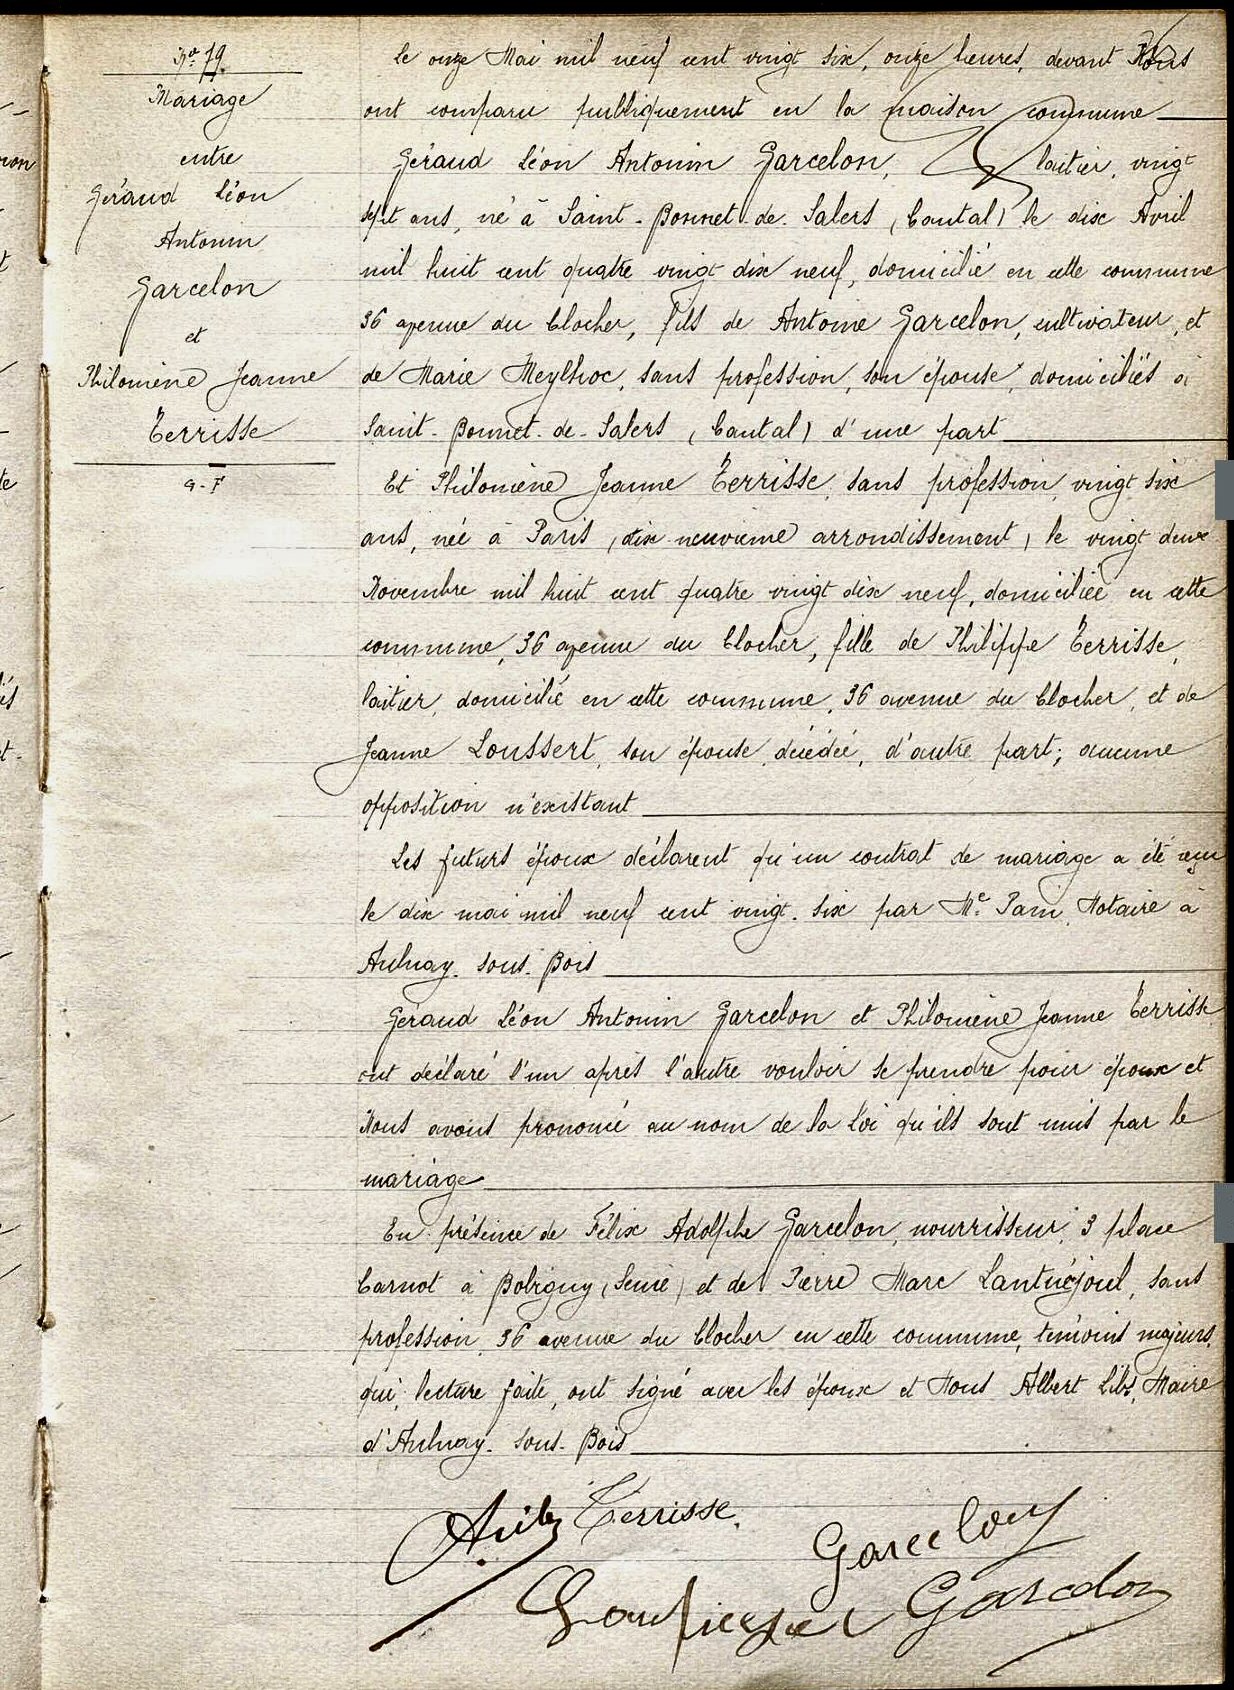 No 79
Mariage
entre
Géraud Léon
Antonin
Garcelon
et
Philomène Jeanne
Terrisse
G.F
Le onze Mai mil neuf cent vingt six, onze heures, devant Nous
ont comparu publiquement en la maison commune
Géraud Léon Antonin Garcelon, laitier, vingt
sept ans, né à Saint-Bonnet-de-Salers (Cantal) le dix Avril
mil huit cent quatre vingt dix neuf, domicilié en cette commune
36 avenue du Clocher, fils de Antoine Garcelon, cultivateur, et
de Marie Meylhoc, sans profession, son épouse, domiciliés à
Saint-Bonnet-de-Salers (Cantal) d'une part
Et Philomène Jeanne Terrisse, sans profession, vingt six
ans, née à Paris (dix-neuvième arrondissement) le vingt deux
Novembre mil huit cent quatre vingt dix neuf, domiciliée en cette
commune, 36 avenue du Clocher, fille de Philippe Terrisse,
laitier, domicilié en cette commune, 36 avenue du Clocher, et de
Jeanne Loussert, son épouse, décédée, d'autre part; aucune
opposition n'existant
Les futurs époux déclarent qu'un contrat de mariage a été reçu
le dix mai mil neuf cent vingt-six par Me Pain, Notaire à
Aulnay-sous-Bois
Géraud Léon Antonin Garcelon et Philomène Jeanne Terrisse
ont déclaré l'un après l'autre vouloir se prendre pour époux et
Nous avons prononcé au nom de la Loi qu'ils sont unis par le
mariage
En présence de Félix Adolphe Garcelon, nourrisseur, 3 place
Carnot à Bobigny (Seine) et de Pierre Marc Lantuéjoul, sans
profession, 36 avenue du Clocher en cette commune, témoins majeurs,
qui, lecture faite, ont signé avec les époux et Nous Albert Libs, Maire
d'Aulnay-sous-Bois
Terrisse
Garcelon
Garcelon